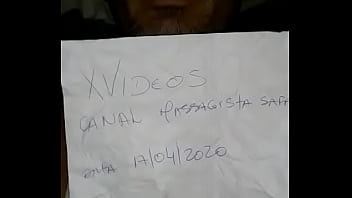 XVIDEOS
CANAL MASSAGISTA SAFA
DATA 17/04/2020